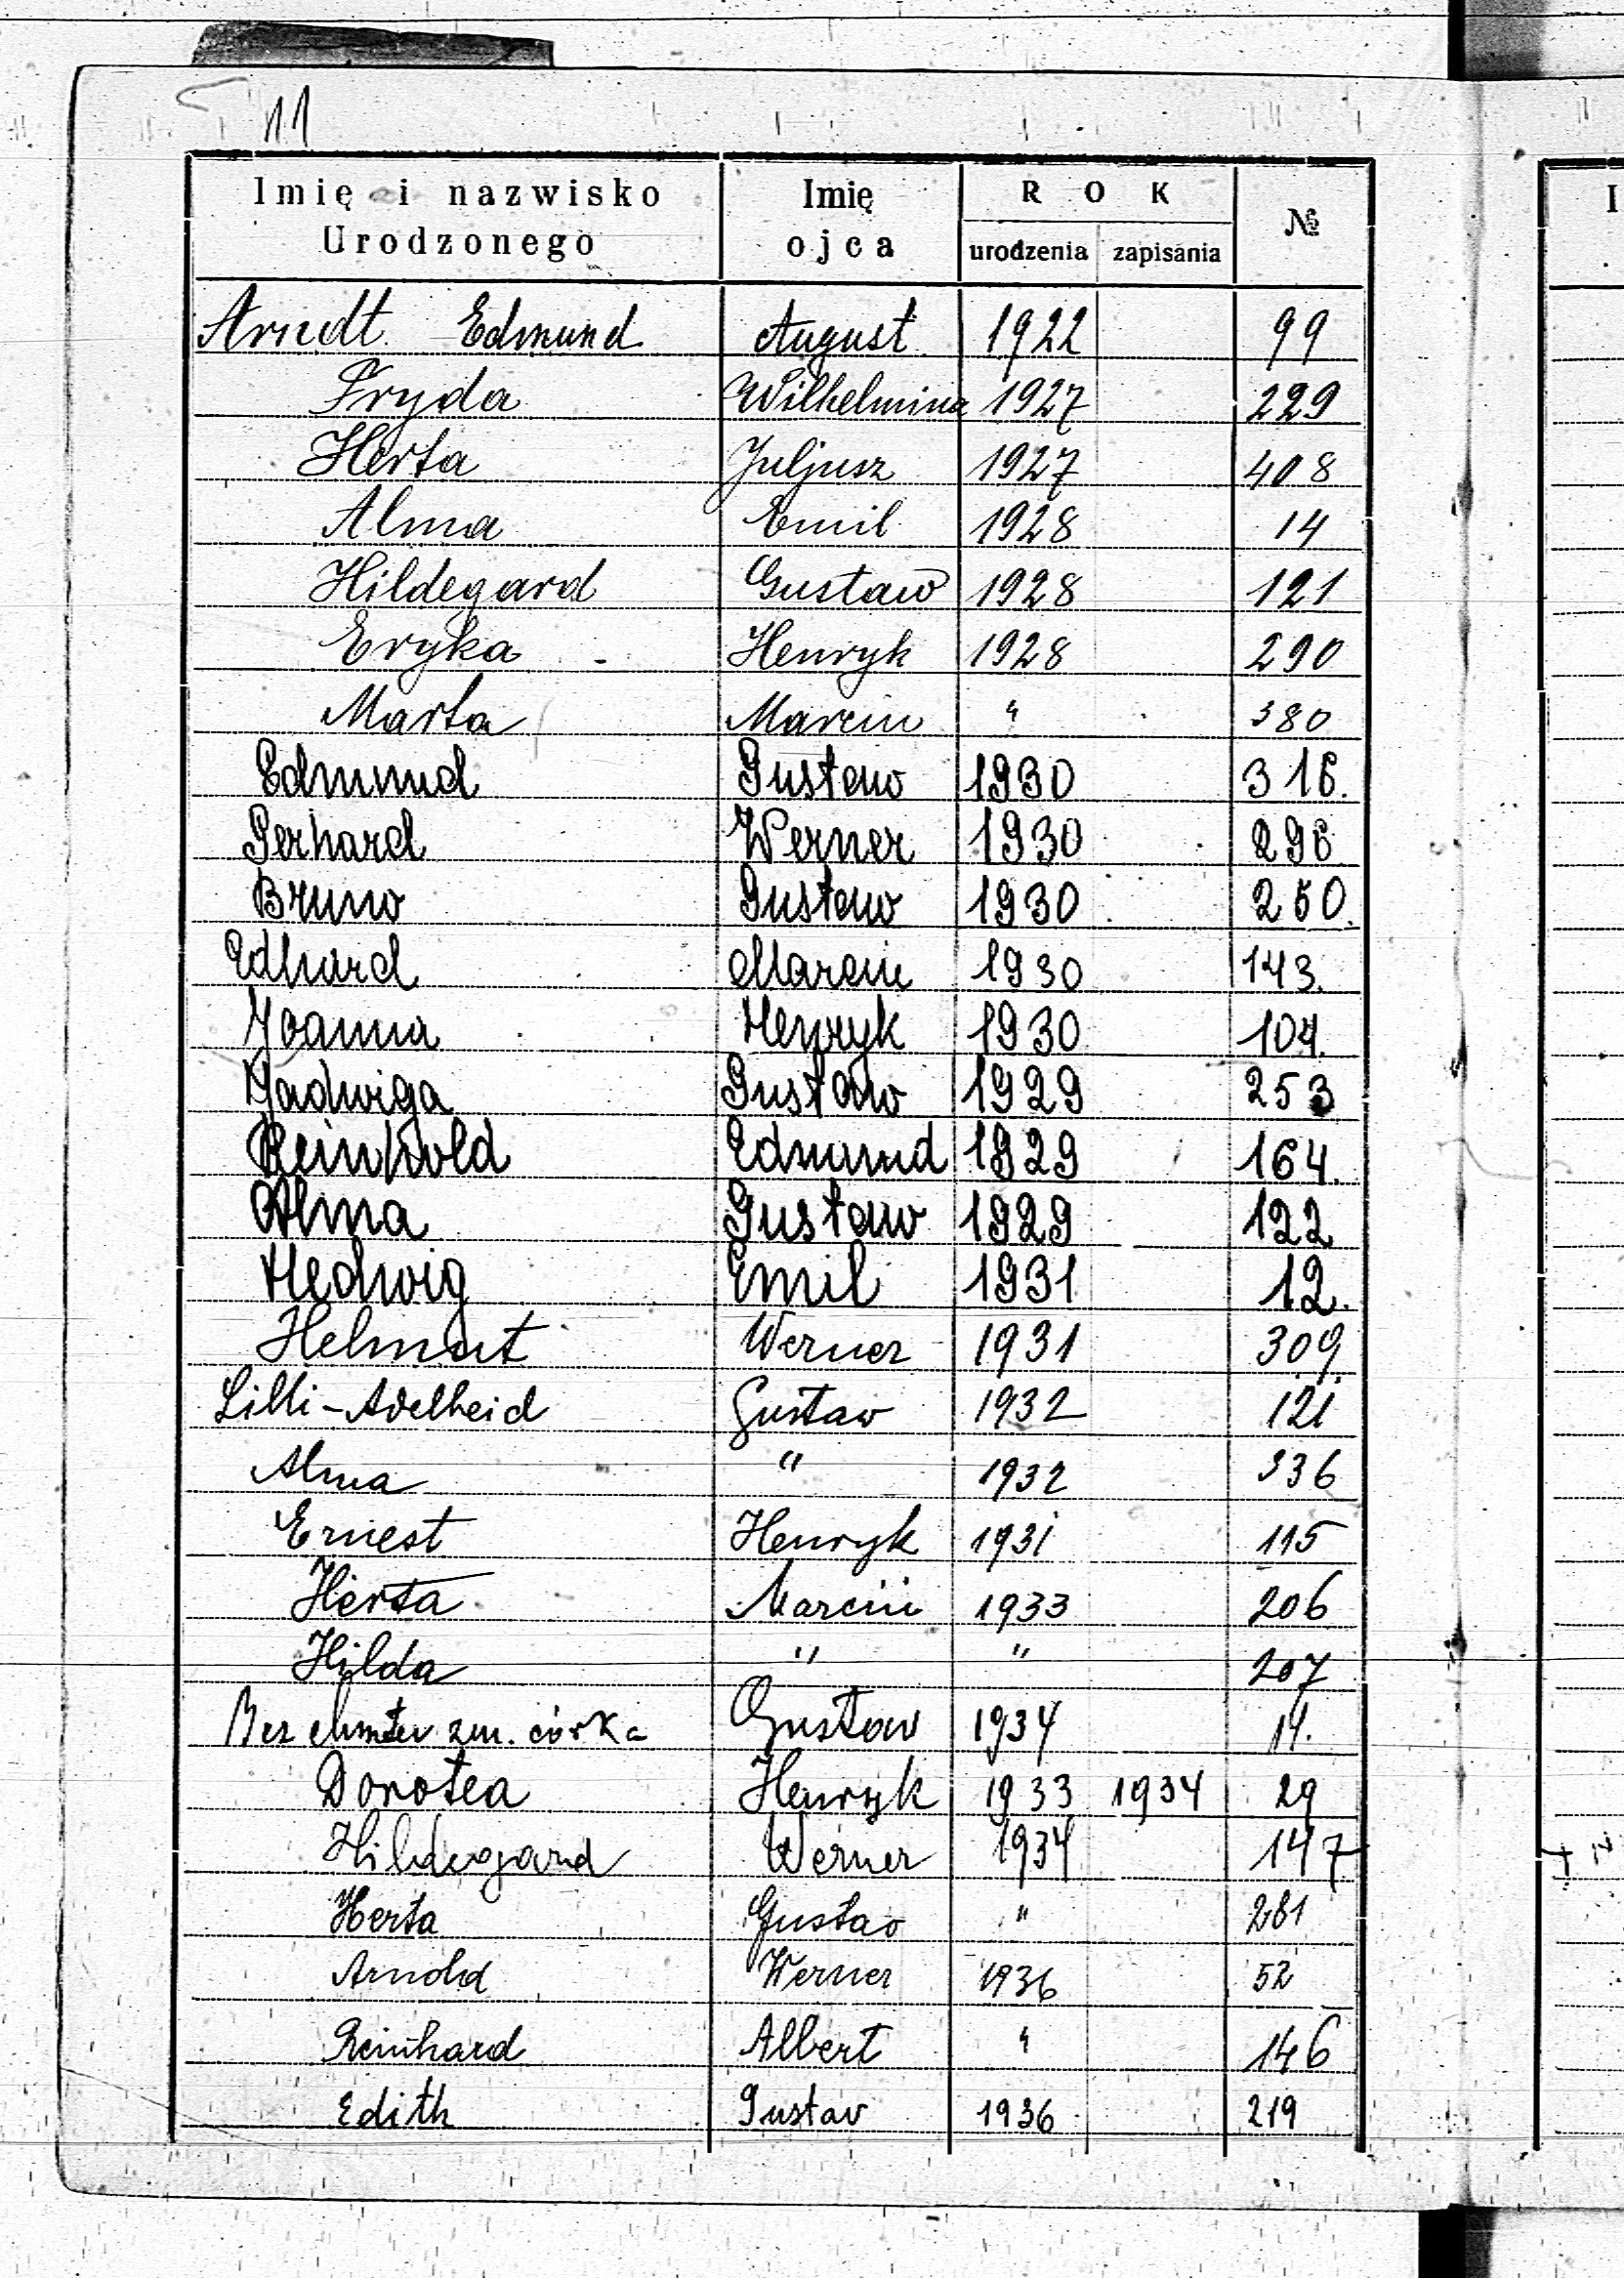 11
Imię i nazwisko Urodzonego | Imię ojca | ROK urodzenia | zapisania | №
Arndt Edmund August 1922 99
Fryda Wilhelmina 1927 229
Herta Juljusz 1927 408
Alma Emil 1928 14
Hildegard Gustaw 1928 121
Eryka Henryk 1928 290
Marta Marcin " 380
Edmund Gustaw 1930 316.
Gerhard Werner 1930 296
Bruno Gustaw 1930 250.
Edhard Marcin 1930 143.
Joanna Henryk 1930 104.
Jadwiga Gustaw 1929 253
Reinhold Edmund 1929 164.
Alma Gustaw 1929 122
Hedwig Emil 1931 12.
Helmut Werner 1931 309
Lilli-Adelheid Gustaw 1932 121
Alma " 1932 336
Ernest Henryk 1931 115
Herta Marcin 1933 206
Hilda " " 207
Bez chrztu zm. córka Gustaw 1934 11.
Dorotea Henryk 1933 1934 29
Hildegard Werner 1934 147
Herta Gustav " 281
Arnold Werner 1936 52
Reinhard Albert " 146
Edith Gustav 1936 219